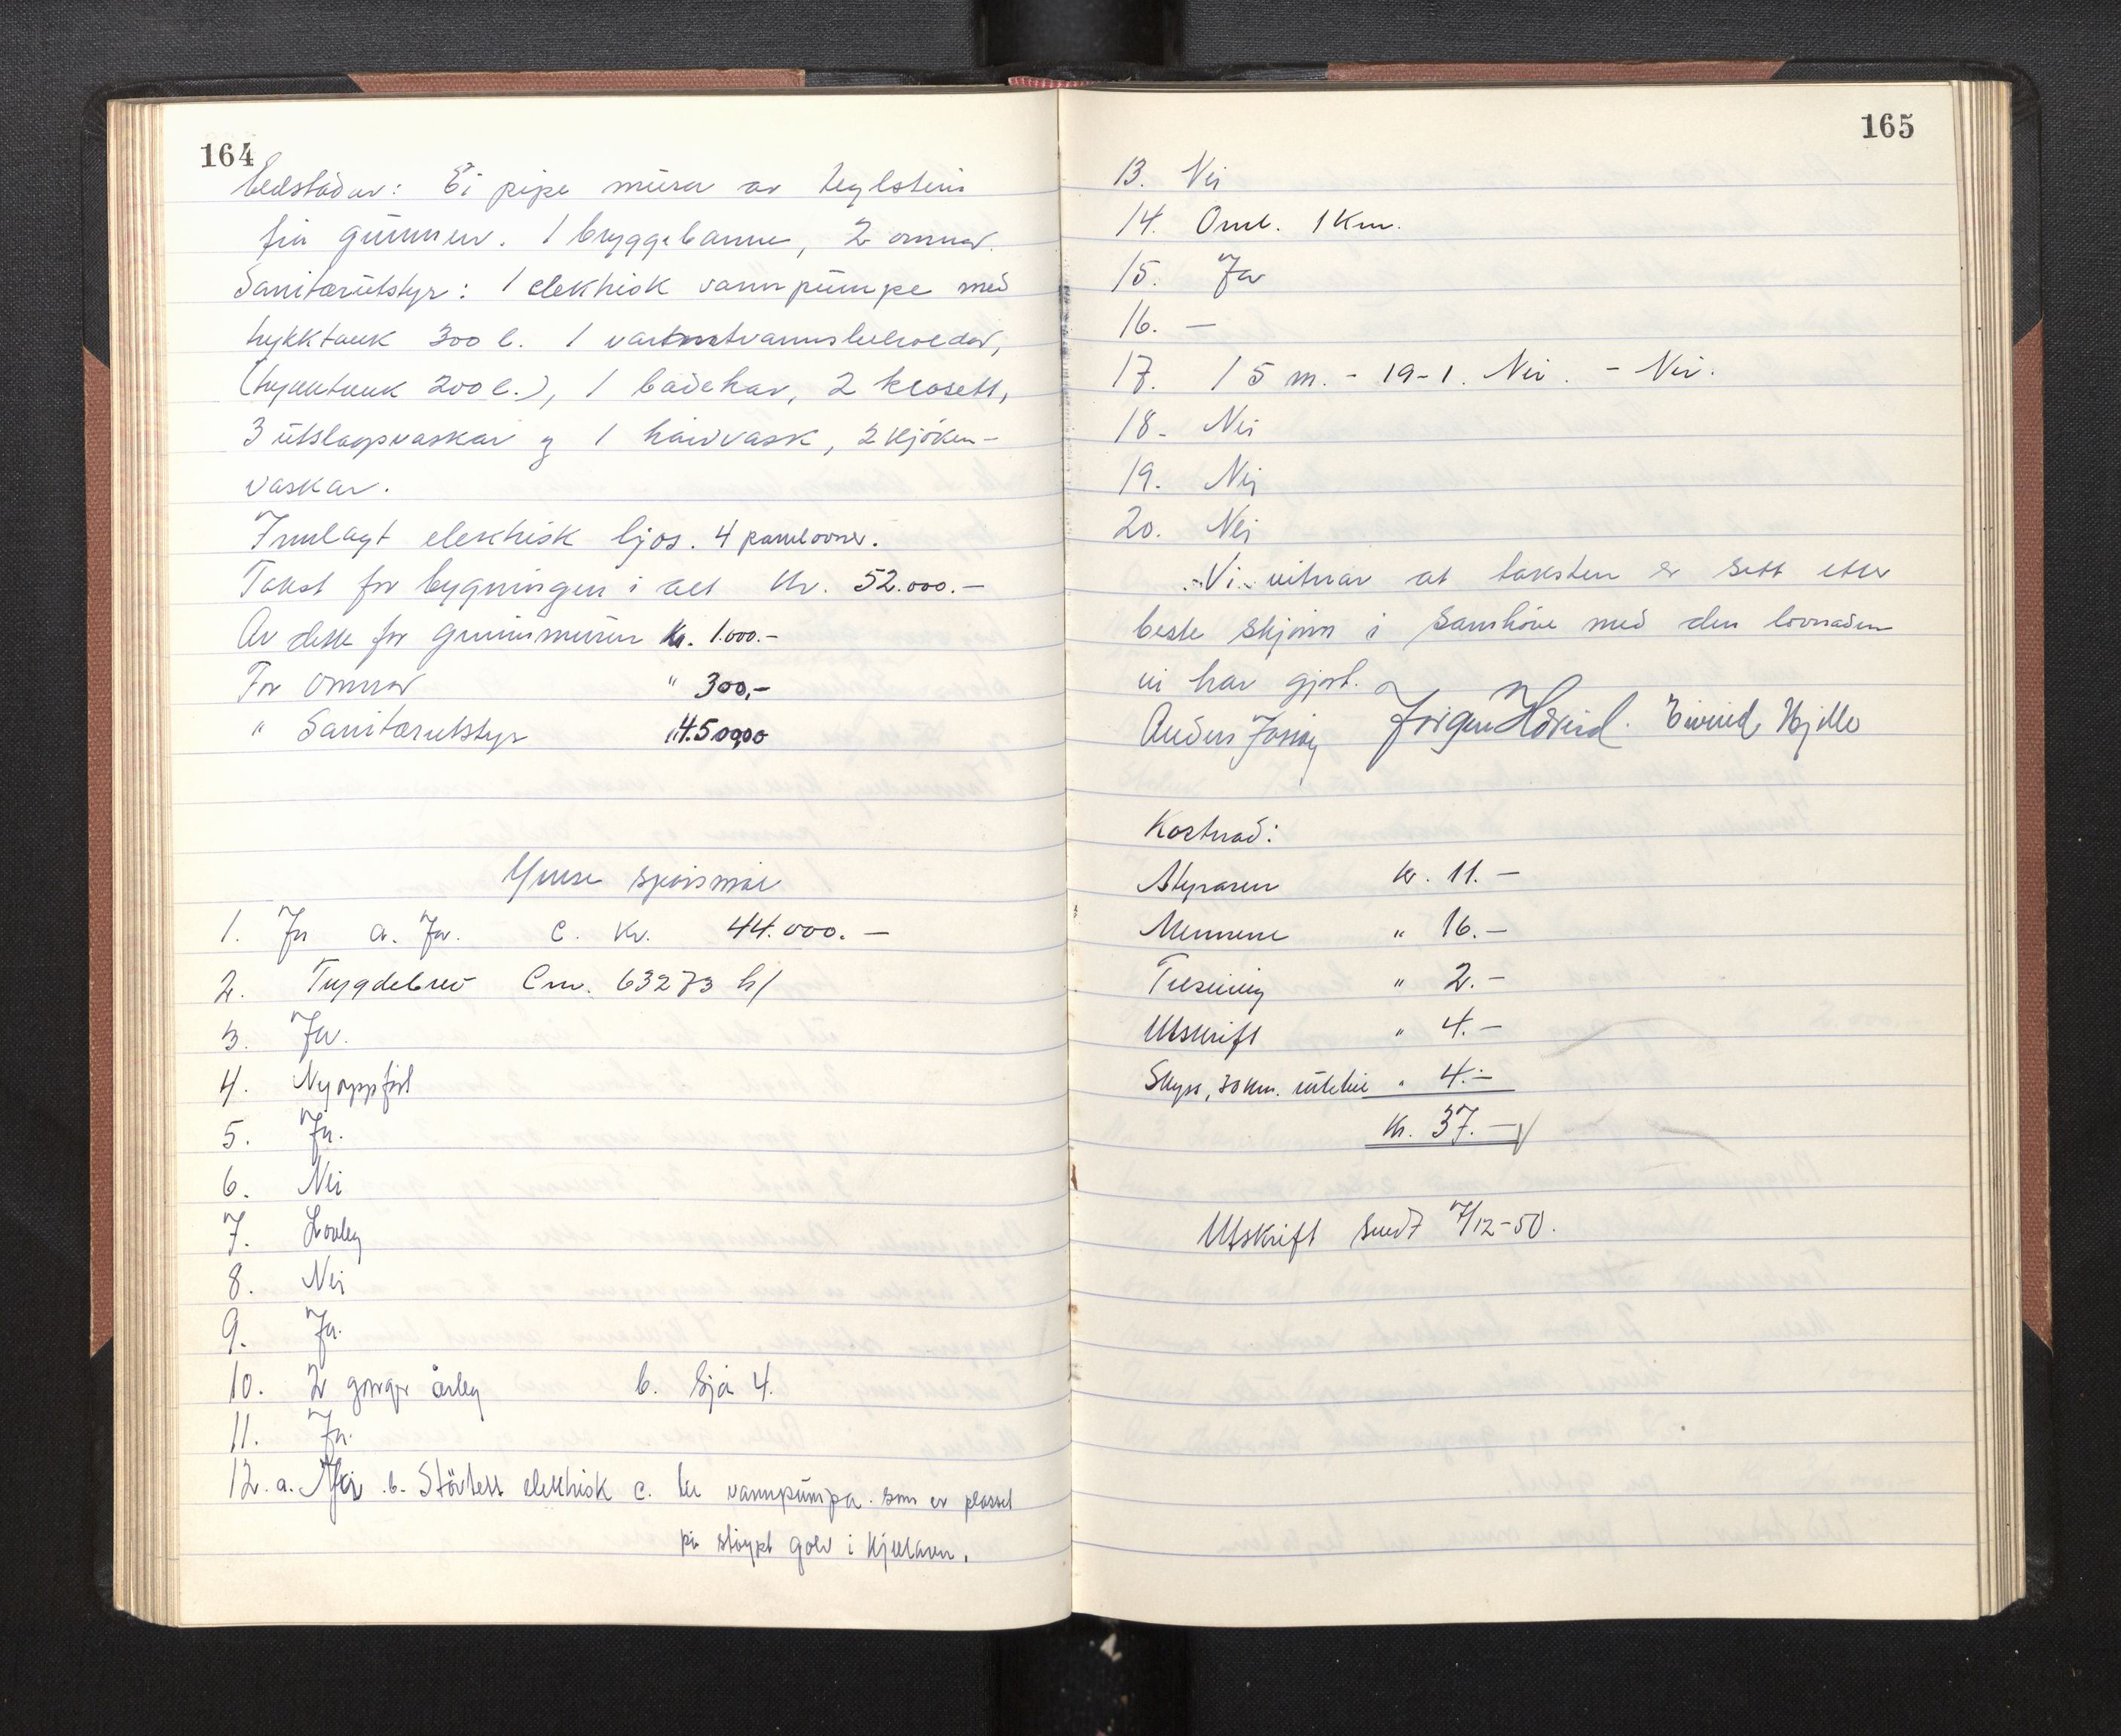 164
Eldstadar: Ei pipe mura av teglstein
frå grunnen. 1 bryggepanne, 2 omnar.
Sanitærutstyr: 1 elektrisk vannpumpe med
trykktank 300 l. 1 varmtvannsbeholder,
(trykktank 200 l.), 1 badekar, 2 klosett,
3 utslagsvaskar og 1 handvask, 2 kjöken-
vaskar.
Innlagt elektrisk ljos. 4 panelovner.
Takst for bygningen i alt kr. 52.000.-
Av dette for grunnmuren kr. 1.000.-
For omnar " 300,-
" Sanitærutstyr
Ymse spörsmål
1. Ja a. Ja. c. kr. 44.000.-
2. Trygdebrev Cnr. 63273 b/
3. Ja.
4. Nyoppfört
5. Ja.
6. Nei
7. Lovleg
8. Nei
9. Ja.
10. 2 gonger årleg b. Sjå 4.
11. Ja.
12. a. Nei b. Störtett elektrisk c. til vannpumpa som er plassert
på stöypt golv i kjellaren.
165
13. Nei
14. Oml. 1 km.
15. Ja
16. —
17. 15 m. - 19-1. Nei. - Nei.
18. Nei
19. Nei
20. Nei
Vi vitnar at taksten er sett etter
beste skjönn i samhöve med den lovnaden
vi har gjort.
Anders Jörgen Eivind Hjelle
Kostnad:
Styraren kr. 11.-
Mennene " 16.-
Tilsining " 2.-
Utskrift " 4.-
Skyss, 30 km. " 4.-
kr. 37.-
Utskrift sendt 7/12-50.